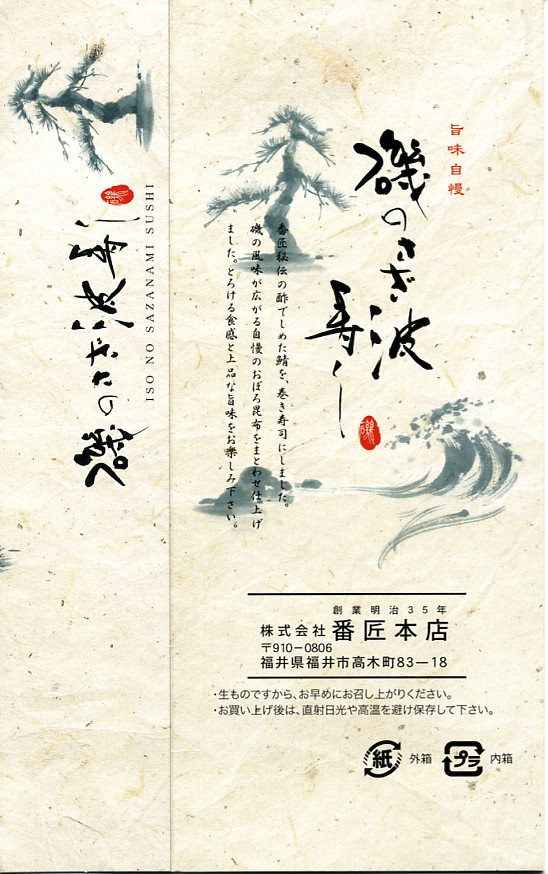 旨味自慢
磯のさざ波
寿し
番匠秘伝の酢でしめた鯖を、巻き寿司にしました。
磯の風味が広がる自慢のおぼろ昆布をまとわせ仕上げ
ました。とろける食感と上品な旨味をお楽しみ下さい。
磯のさざ波寿し
ISO NO SAZANAMI SUSHI
創業明治35年
株式会社 番匠本店
〒910-0806
福井県福井市高木町83-18
・生ものですから、お早めにお召し上がりください。
・お買い上げ後は、直射日光や高温を避け保存して下さい。
紙 外箱 プラ 内箱